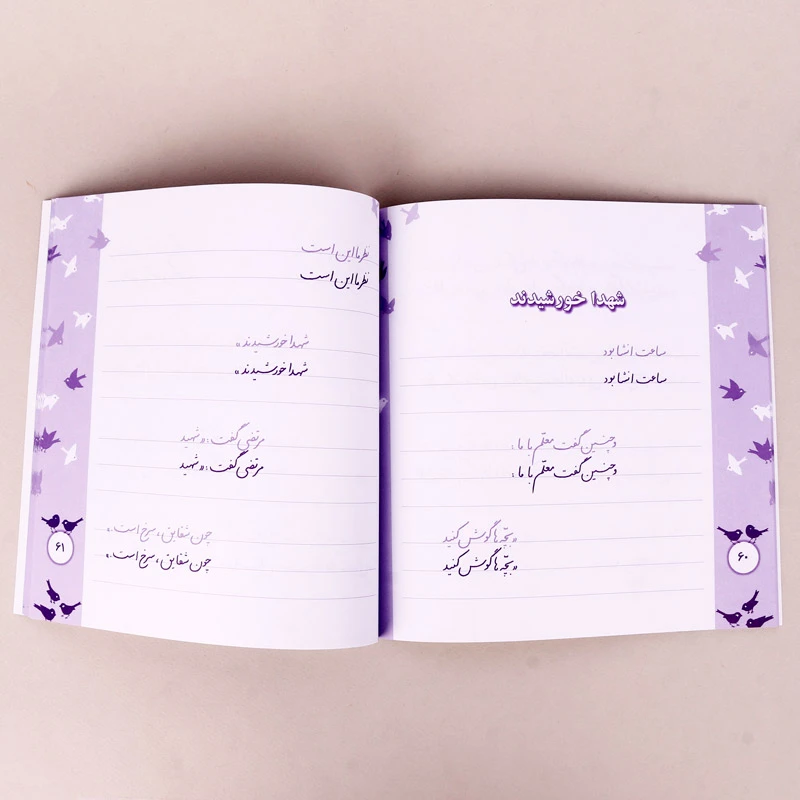 شهدا خورشیدند
ساعت انشا بود
ساعت انشا بود
و چنین گفت معلّم با ما :
و چنین گفت معلّم با ما :
«بچّه ها گوش کنید
«بچّه ها گوش کنید
۶۰
نظر ما این است
نظر ما این است
شهدا خورشیدند»
شهدا خورشیدند»
مرتضی گفت : «شهید
مرتضی گفت : «شهید
چون شقایق ، سرخ است.»
چون شقایق ، سرخ است.»
۶۱